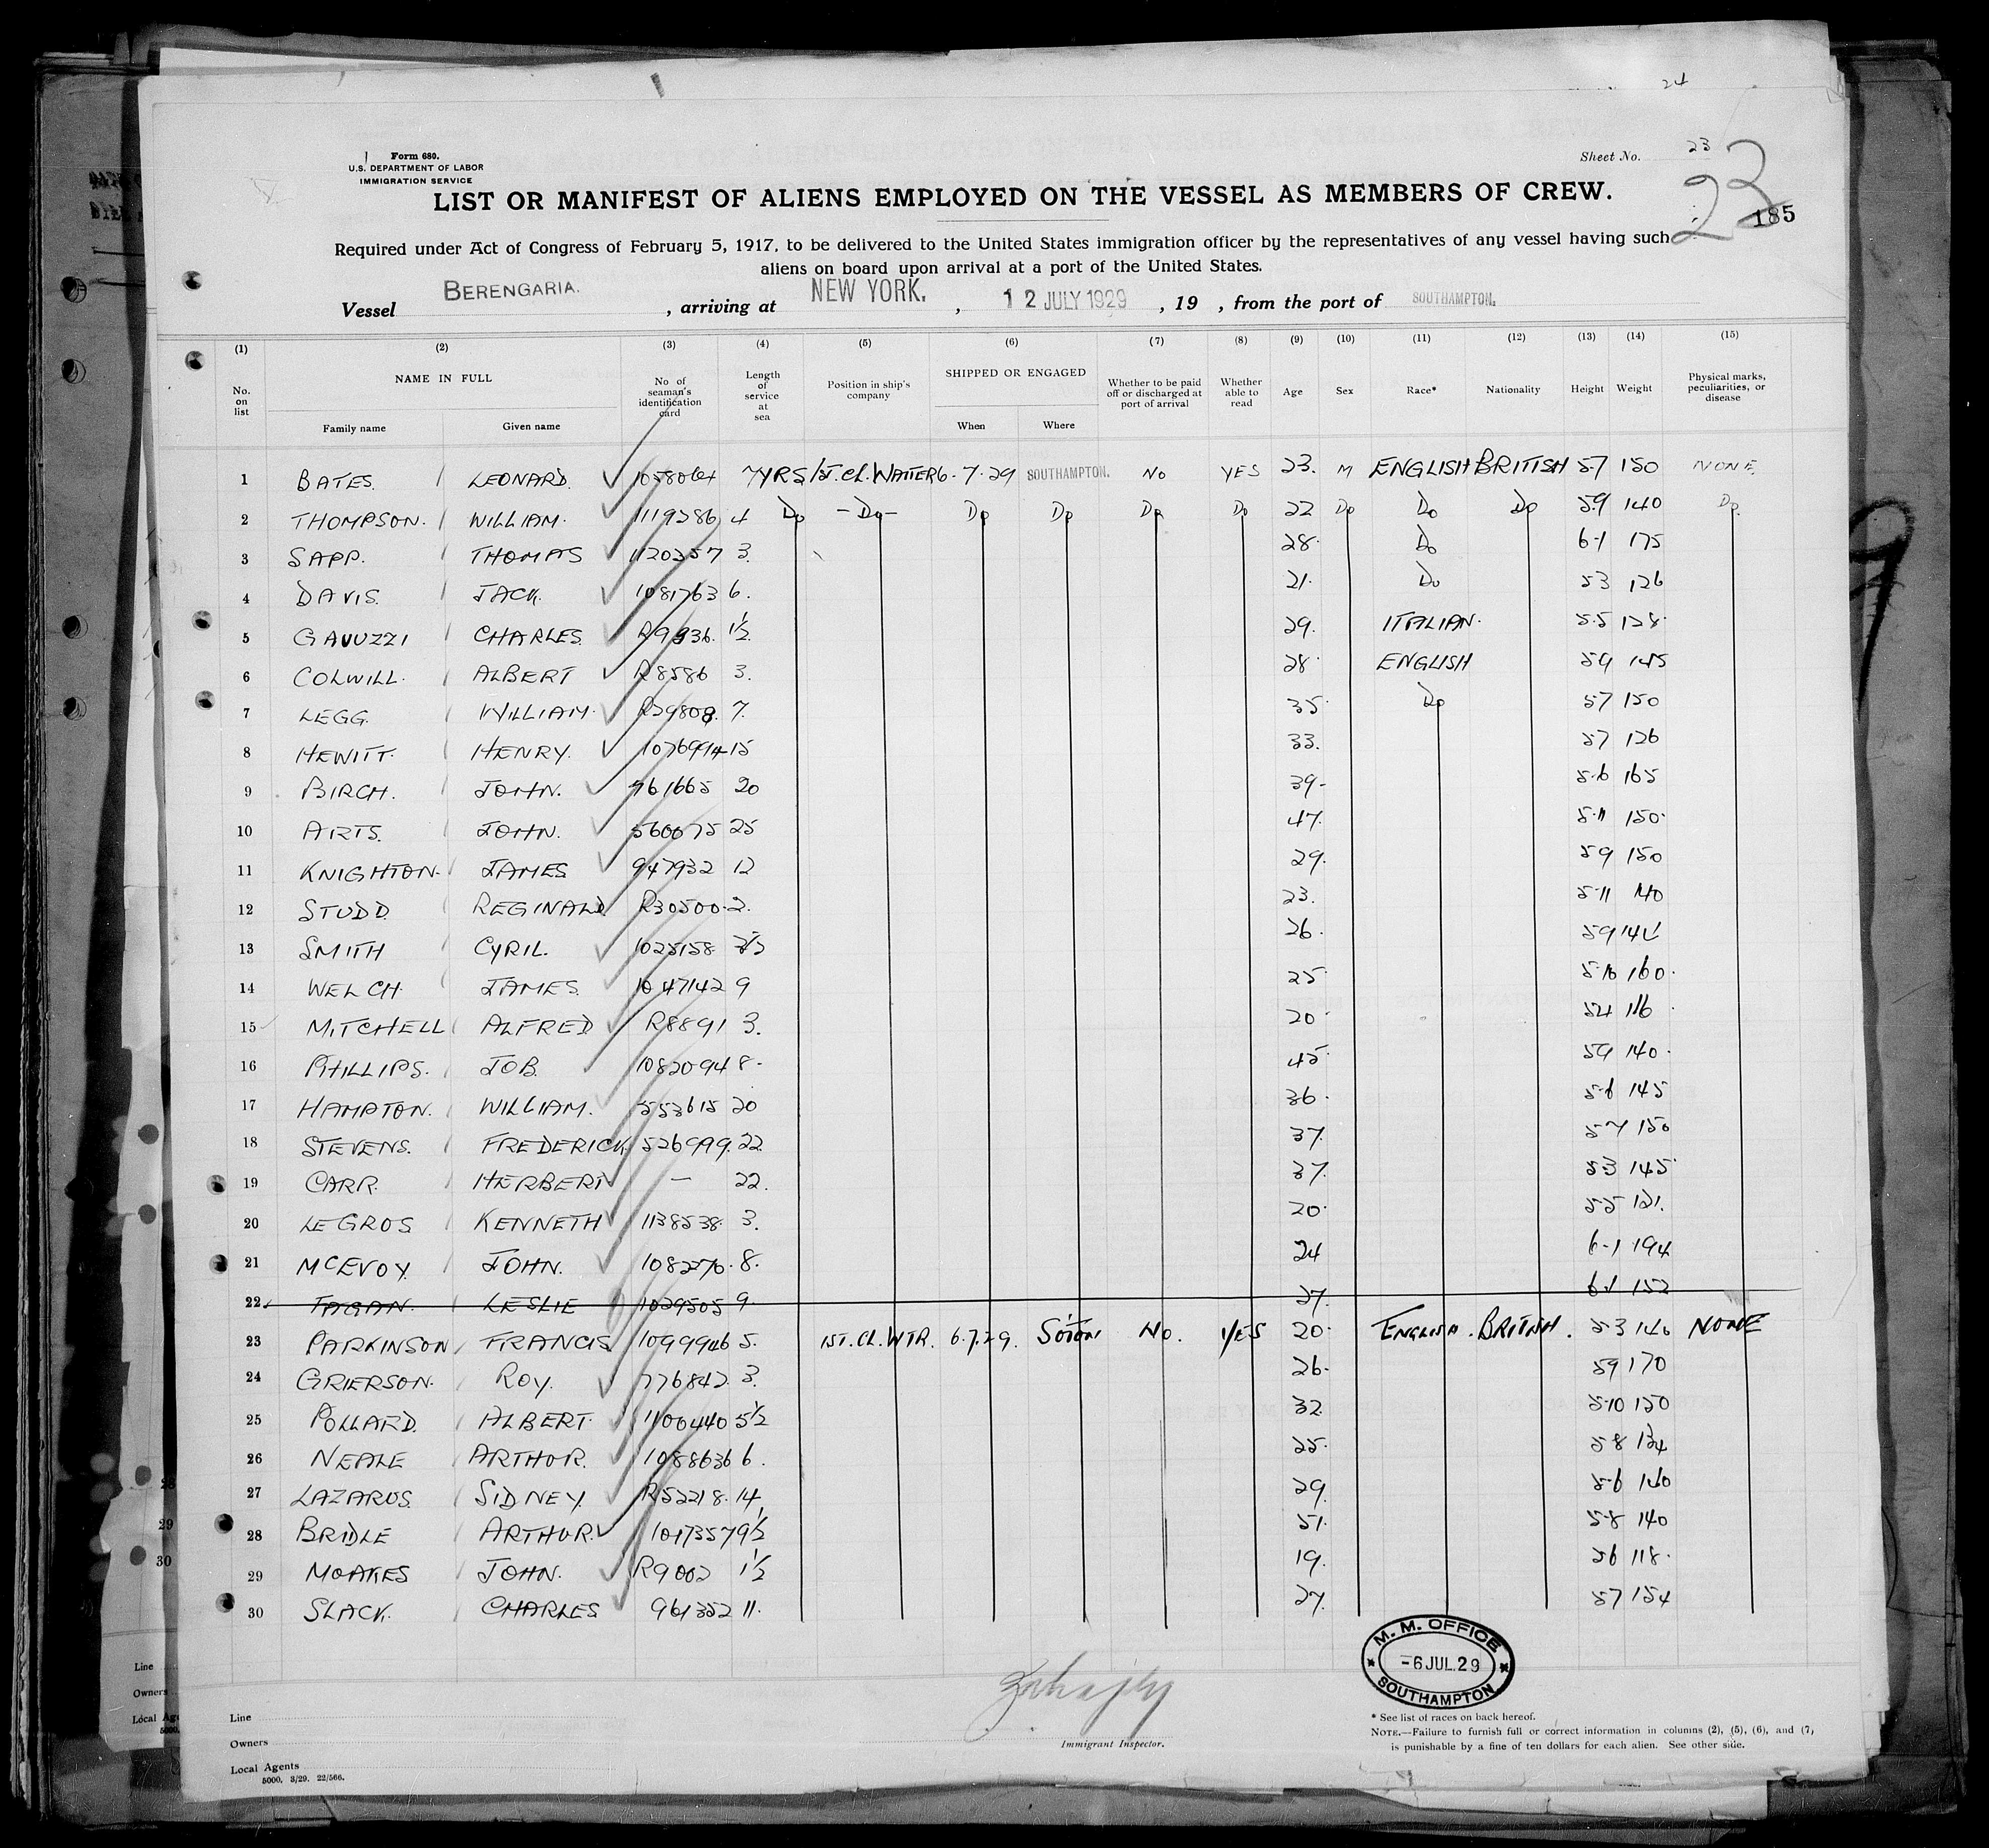 24
Form 680.
U.S. DEPARTMENT OF LABOR
IMMIGRATION SERVICE
Sheet No. 23
23
185
LIST OR MANIFEST OF ALIENS EMPLOYED ON THE VESSEL AS MEMBERS OF CREW.
Required under Act of Congress of February 5, 1917, to be delivered to the United States immigration officer by the representatives of any vessel having such
aliens on board upon arrival at a port of the United States.
Vessel BERENGARIA. , arriving at NEW YORK. , 12 JULY 1929 , 19 , from the port of SOUTHAMPTON.
(1) (2) (3) (4) (5) (6) (7) (8) (9) (10) (11) (12) (13) (14) (15)
No. on list NAME IN FULL Family name Given name No. of seaman's identification card Length of service at sea Position in ship's company SHIPPED OR ENGAGED When Where Whether to be paid off or discharged at port of arrival Whether able to read Age Sex Race* Nationality Height Weight Physical marks, peculiarities, or disease
1 BATES. LEONARD. 7YRS 1ST. CL. WAITER 6-7-29 SOUTHAMPTON. NO YES 23. M ENGLISH BRITISH 5.7 150 NONE.
2 THOMPSON. WILLIAM. 1119286 4 Do -Do- Do Do Do Do 22 Do Do Do 5.9 140 Do.
3 SAPP. THOMAS 1120357 3. 28. Do 6-1 175
4 DAVIS. JACK. 1081763 6. 21. Do 5 3 126
5 GAVUZZI CHARLES. R9936. 1½ 29. ITALIAN. 5.5 128.
6 COLWILL. ALBERT R8586 3. 28. ENGLISH 5 9 145
7 LEGG. WILLIAM. R29808. 7. 35. Do 5 7 150
8 HEWITT. HENRY. 1076994 15 33. 5 7 126
9 BIRCH. JOHN. 961665 20 39- 5.6 165
10 ARTS. JOHN. 560075 25 47. 5.11 150.
11 KNIGHTON. JAMES 947932 12 29. 5 9 150
12 STUDD. REGINALD. R30500. 2. 23. 5-11 140
13 SMITH CYRIL. 1025158 26. 5 9
14 WELCH. JAMES. 1047142 9 25 5.10 160.
15 MITCHELL ALFRED R8891 3. 20 5 4 116
16 PHILLIPS. JOB. 1082094 8- 45. 5 9 140.
17 HAMPTON. WILLIAM. 553615 20 36. 5.6 145
18 STEVENS. FREDERICK 526999. 22. 37. 5-7 150
19 CARR. HERBERT — 22. 37. 5.3 145
20 LE GROS KENNETH 1138538. 3. 20. 5 5 121.
21 MCEVOY. JOHN. 1082270. 8. 24 6-1 194
22 FAGAN. LESLIE 1029505 9. 27. 6-1 152
23 PARKINSON FRANCIS 1099946 5. 1ST. CL. WTR. 6.7.29. SOTON NO. YES 20. ENGLISH. BRITISH. 5.3 140 NONE
24 GRIERSON. ROY. 776842 3. 26. 5 9 170
25 POLLARD. ALBERT. 1100440 5½ 32. 5.10 150
26 NEALE ARTHUR. 1088636 6. 25. 5 8 134
27 LAZARUS. SIDNEY. R52218. 14 29. 5.6 140
28 BRIDLE ARTHUR. 1017357 9½ 51. 5.8 140
29 MOAKES JOHN. R9002 1½ 19. 5 6 118.
30 SLACK. CHARLES 961352 11. 27. 5 7 154
M. M. OFFICE
-6 JUL.29
SOUTHAMPTON
Line
Owners
Local Agents
5000. 3/29. 22/566.
Immigrant Inspector.
* See list of races on back hereof.
NOTE.—Failure to furnish full or correct information in columns (2), (5), (6), and (7)
is punishable by a fine of ten dollars for each alien. See other side.
28
29
30
Line
Owners
Local Ag
5000.
9